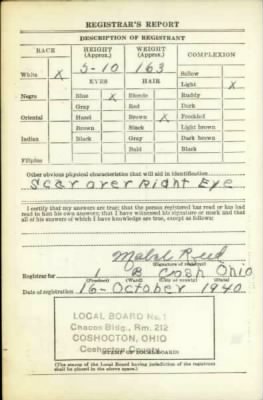 REGISTRAR'S REPORT
DESCRIPTION OF REGISTRANT
RACE HEIGHT (Approx.) WEIGHT (Approx.) COMPLEXION
White X 5-10 163 Sallow
EYES HAIR Light X
Negro Blue X Blonde Ruddy
Gray Red Dark
Oriental Hazel Brown X Freckled
Brown Black Light brown
Indian Black Gray Dark brown
Bald Black
Filipino
Other obvious physical characteristics that will aid in identification
Scar over Right Eye
I certify that my answers are true; that the person registered has read or has had
read to him his own answers; that I have witnessed his signature or mark and that
all of his answers of which I have knowledge are true, except as follows:
Mabel Reed
(Signature of registrar)
Registrar for 1 B Cosh Ohio
(Precinct) (Ward) (City or county) (State)
Date of registration 16-October 1940
LOCAL BOARD No. 1
Chacos Bldg., Rm. 212
COSHOCTON, OHIO
Coshocton County
STAMP OF LOCAL BOARD
(The stamp of the Local Board having jurisdiction of the registrant
shall be placed in the above space.)